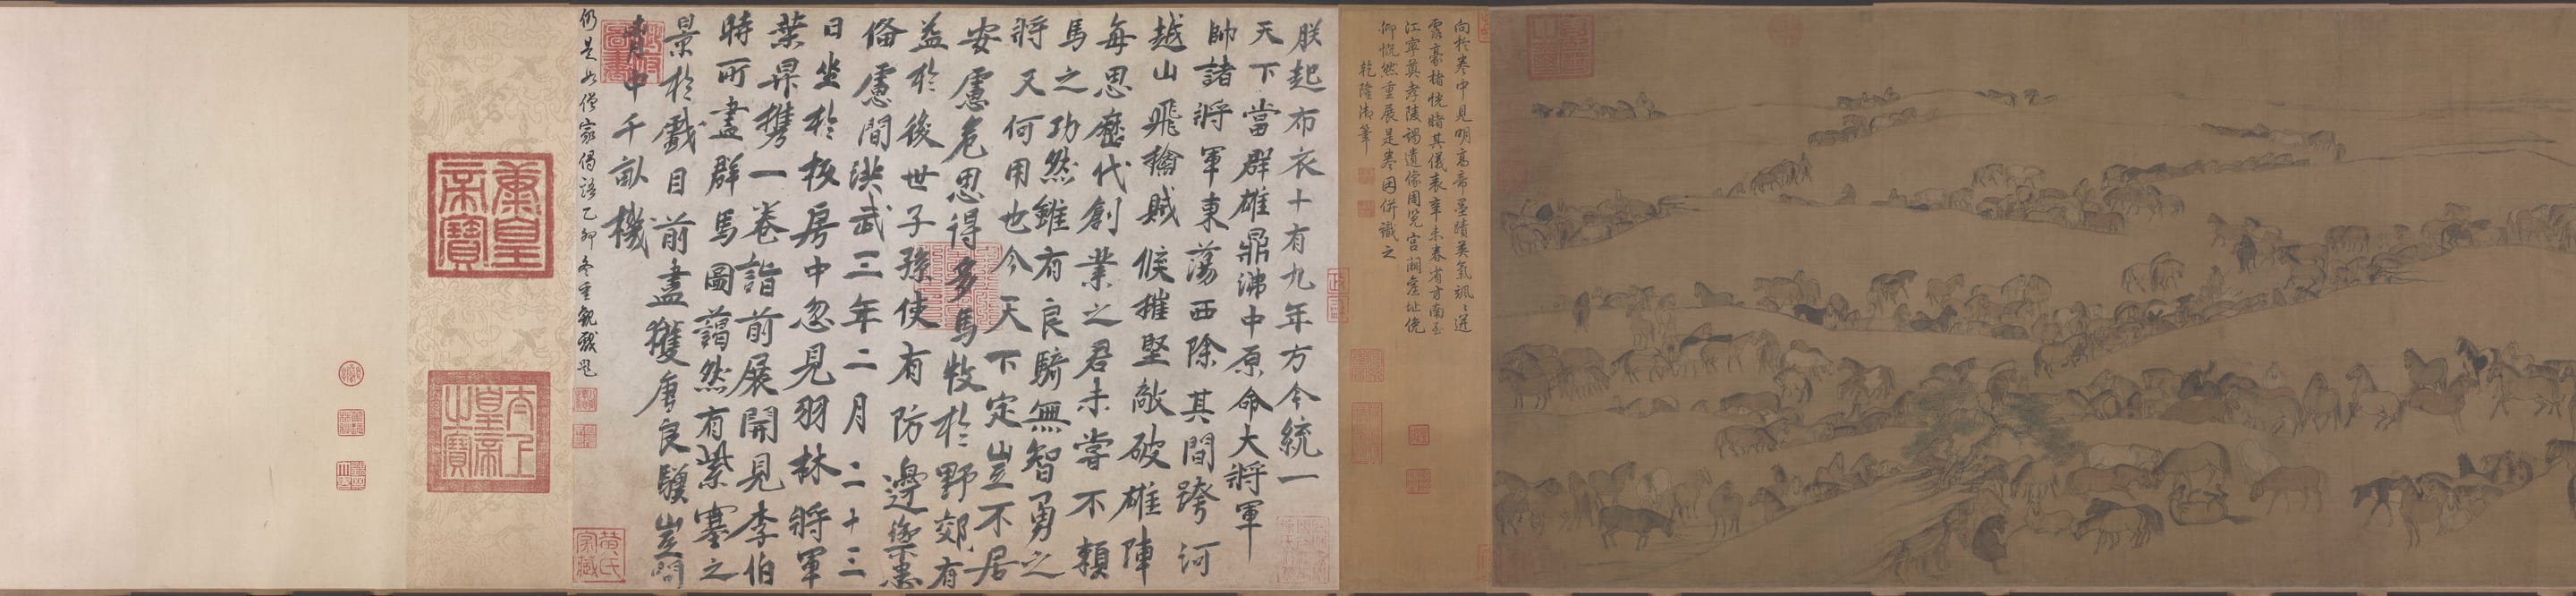 向於卷中見明高帝墨蹟英氣颯〻迸
露豪楮恍睹其儀表辛未春省方南至
江寧奠孝陵謁遺像周覽宮闕舊址俛
仰慨然重展是卷因併識之
乾隆御筆
朕起布衣十有九年方今統一
天下當群雄鼎沸中原命大將軍
帥諸將軍東蕩西除其間跨河
越山飛擒賊候摧堅敵破雄陣
每思歷代創業之君未嘗不賴
馬之功然雖有良騎無智勇之
將又何用也今天下定豈不居
安慮危思得多馬牧於野郊有
益於後世子孫使有防邊禦患
俻慮間洪武三年二月二十三
日坐於板房中忽見羽林將軍
葉昇携一卷詣前展開見李伯
時所畫群馬圖藹然有紫塞之
景於戲目前盡獲唐良驥豈問
胷中千畝機
仍是此僧家偈語乙卯冬重觀戲題
秉皇帝寶
太上皇帝之寶
黃氏家藏